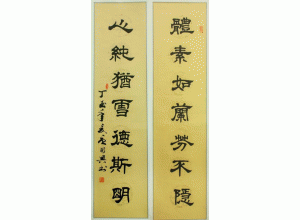 體素如蘭芳不隱
心純猶雪德斯明